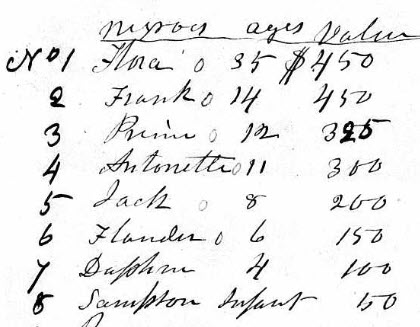 negroes ages Value
No 1 Flora o 35 $450
2 Frank o 14 450
3 Prime o 12 325
4 Antonette o 11 300
5 Jack o 8 200
6 Flander o 6 150
7 Daphne 4 100
8 Sampson Infant 50